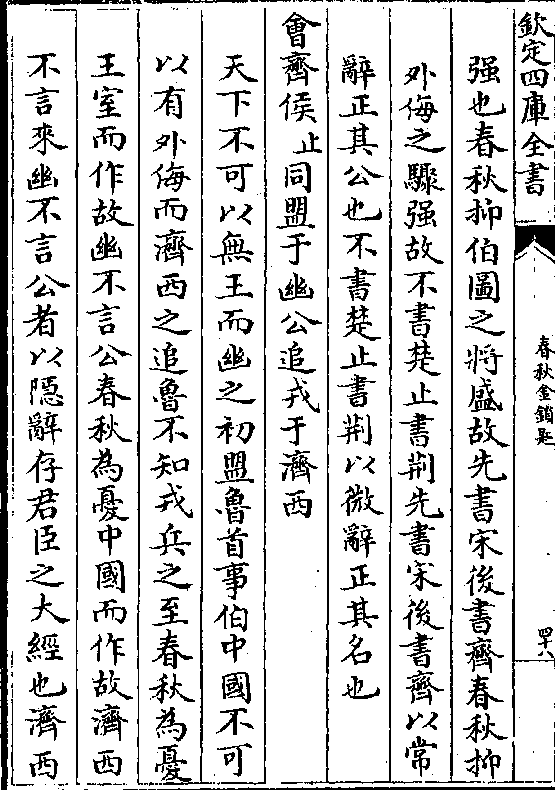 欽定四庫全書
春秋金鎖匙
四十八
强也春秋抑伯圖之將盛故先書宋後書齊春秋抑
外侮之驟强故不書楚止書荆先書宋後書齊以常
辭正其公也不書楚止書荆以微辭正其名也
會齊侯止同盟于幽公追戎于濟西
天下不可以無王而幽之初盟魯首事伯中國不可
以有外侮而濟西之追魯不知戎兵之至春秋為憂
王室而作故幽不言公春秋為憂中國而作故濟西
不言來幽不言公者以隠辭存君臣之大經也濟西